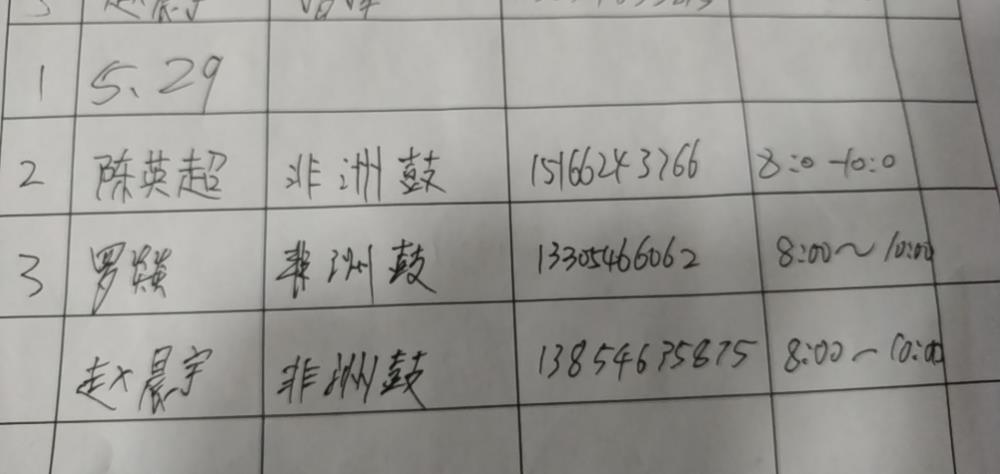 1 5、29
2 陈英超 非洲鼓 15166243766 8:0-10:0
3 罗燚 非洲鼓 13305466062 8:00～10:00
赵晨宇 非洲鼓 13854635875 8:00～10:00